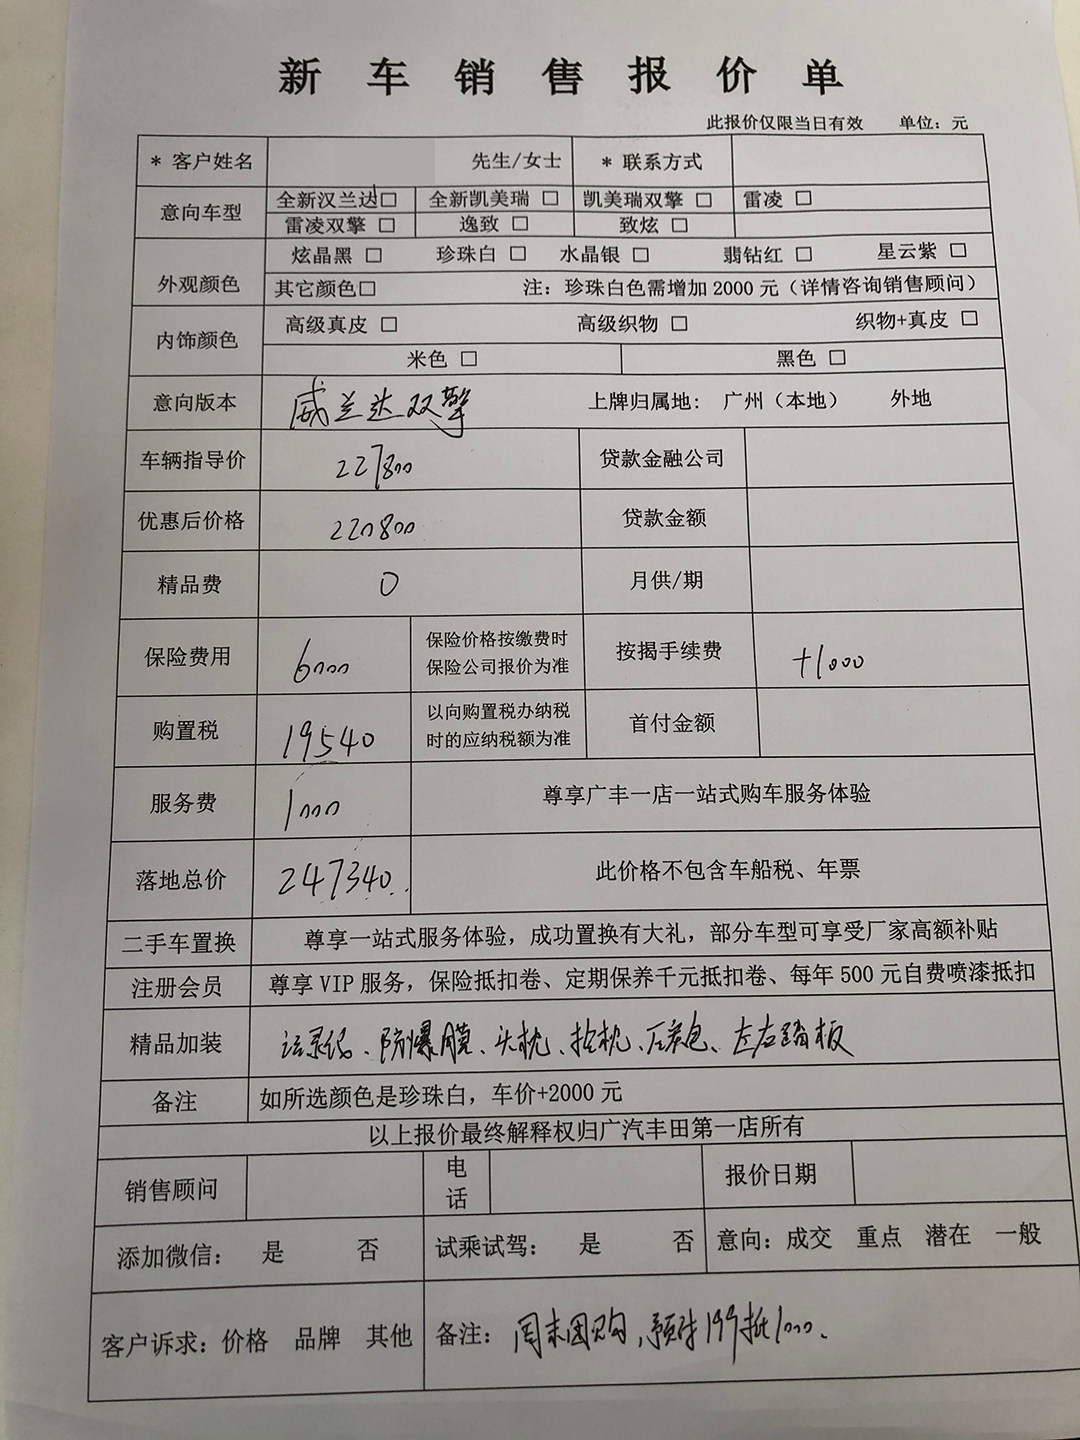 新车销售报价单
此报价仅限当日有效 单位：元
* 客户姓名 先生/女士 * 联系方式
意向车型 全新汉兰达□ 全新凯美瑞 □ 凯美瑞双擎 □ 雷凌 □
雷凌双擎 □ 逸致 □ 致炫 □
外观颜色 炫晶黑 □ 珍珠白 □ 水晶银 □ 翡钻红 □ 星云紫 □
其它颜色□ 注：珍珠白色需增加 2000 元（详情咨询销售顾问）
内饰颜色 高级真皮 □ 高级织物 □ 织物+真皮 □
米色 □ 黑色 □
意向版本 威兰达双擎 上牌归属地： 广州（本地） 外地
车辆指导价 227800 贷款金融公司
优惠后价格 220800 贷款金额
精品费 0 月供/期
保险费用 6000 保险价格按缴费时 按揭手续费 +1000
保险公司报价为准
购置税 19540 以向购置税办纳税 首付金额
时的应纳税额为准
服务费 1000 尊享广丰一店一站式购车服务体验
落地总价 247340 此价格不包含车船税、年票
二手车置换 尊享一站式服务体验，成功置换有大礼，部分车型可享受厂家高额补贴
注册会员 尊享 VIP 服务，保险抵扣卷、定期保养千元抵扣卷、每年 500 元自费喷漆抵扣
精品加装 防爆膜、头枕、抱枕、左右踏板
备注 如所选颜色是珍珠白，车价+2000 元
以上报价最终解释权归广汽丰田第一店所有
销售顾问 电话 报价日期
添加微信： 是 否 试乘试驾： 是 否 意向：成交 重点 潜在 一般
客户诉求：价格 品牌 其他 备注： 周末团购，199抵1000、